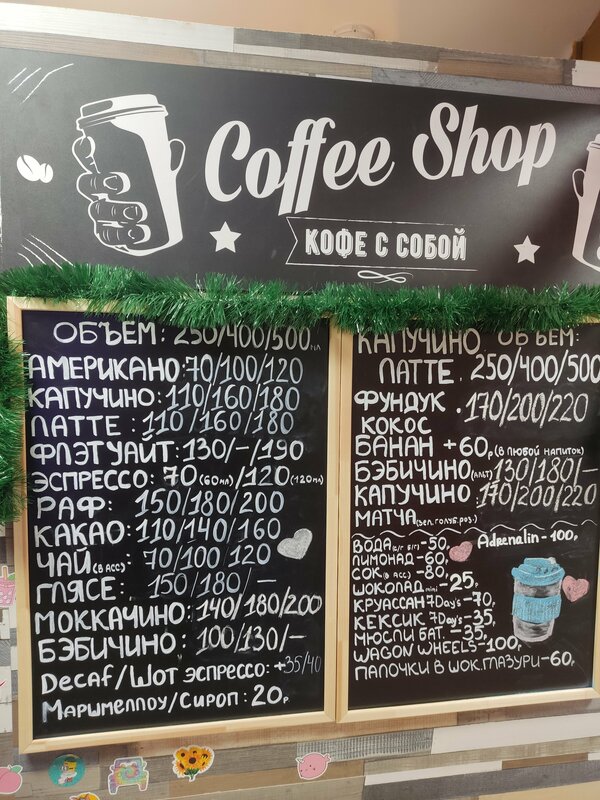 Coffee Shop
КОФЕ С СОБОЙ
ОБЪЕМ: 250/400/500мл
АМЕРИКАНО: 70/100/120
КАПУЧИНО: 110/160/180
ЛАТТЕ: 110/160/180
ФЛЭТ УАЙТ: 130/-/190
ЭСПРЕССО: 70 (60мл)/120 (120мл)
РАФ: 150/180/200
КАКАО: 110/140/160
ЧАЙ (В АСС) 70/100 120
ГЛЯСЕ: 150/180/-
МОККАЧИНО: 140/180/200
БЭБИЧИНО: 100/130/-
Decaf/Шот эспрессо: +35/40
Маршмеллоу/Сироп: 20р.
КАПУЧИНО ОБЪЕМ:
ЛАТТЕ. 250/400/500
ФУНДУК . 170/200/220
КОКОС
БАНАН +60р (В ЛЮБОЙ НАПИТОК)
БЭБИЧИНО (АЛЬТ) 130/180/-
КАПУЧИНО: 170/200/220
МАТЧА (ЗЕЛ. ГОЛУБ. РОЗ.)
ВОДА (С/Г Б/Г) -50р Adrenalin - 100р
ЛИМОНАД -60р
СОК (В АСС) -80р
ШОКОЛАД mini -25р
КРУАССАН 7Day's -70р
КЕКСИК 7Day's -35р
МЮСЛИ БАТ. -35р
WAGON WHEELS -100р
ПАЛОЧКИ В ШОК. ГЛАЗУРИ -60р